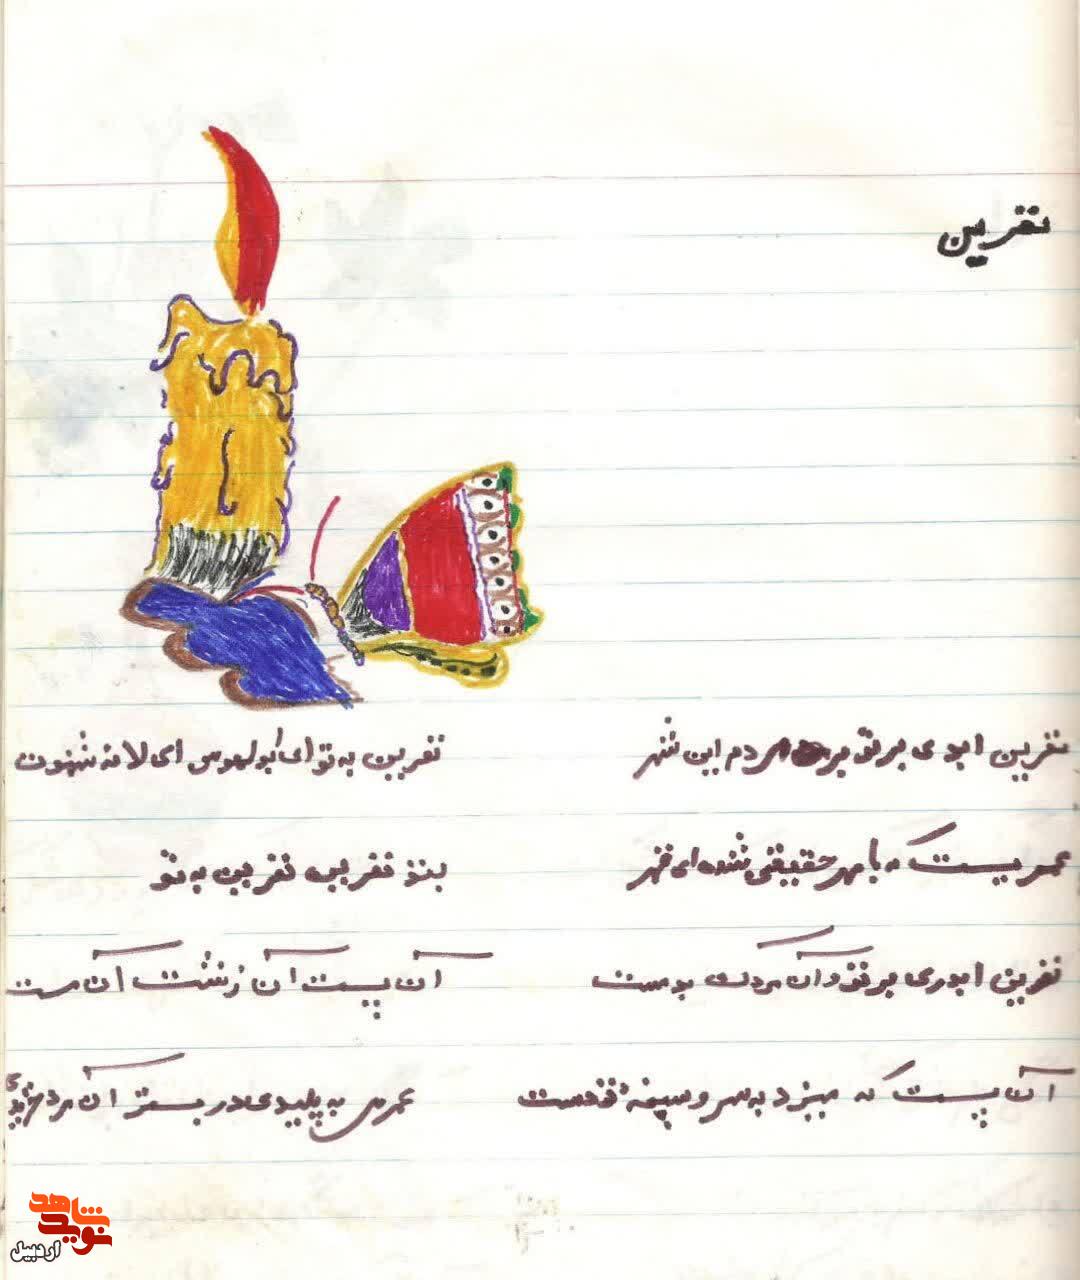 نفرین
نفرین ابدی بر تو بر مردم این شهر نفرین به تو ای بولهوس ای لانه شهوت
عمریست که با مهر حقیقی شده‌ای قهر بتو نفرین نفرین به تو
نفرین ابدی بر تو و آن مردک بد مست آن پست آن زشت آن مست
آن پست که میزد به سر و سینه دست عمری به پلیدی در بستر آن مرد
شاهد
نوید
اردبیل